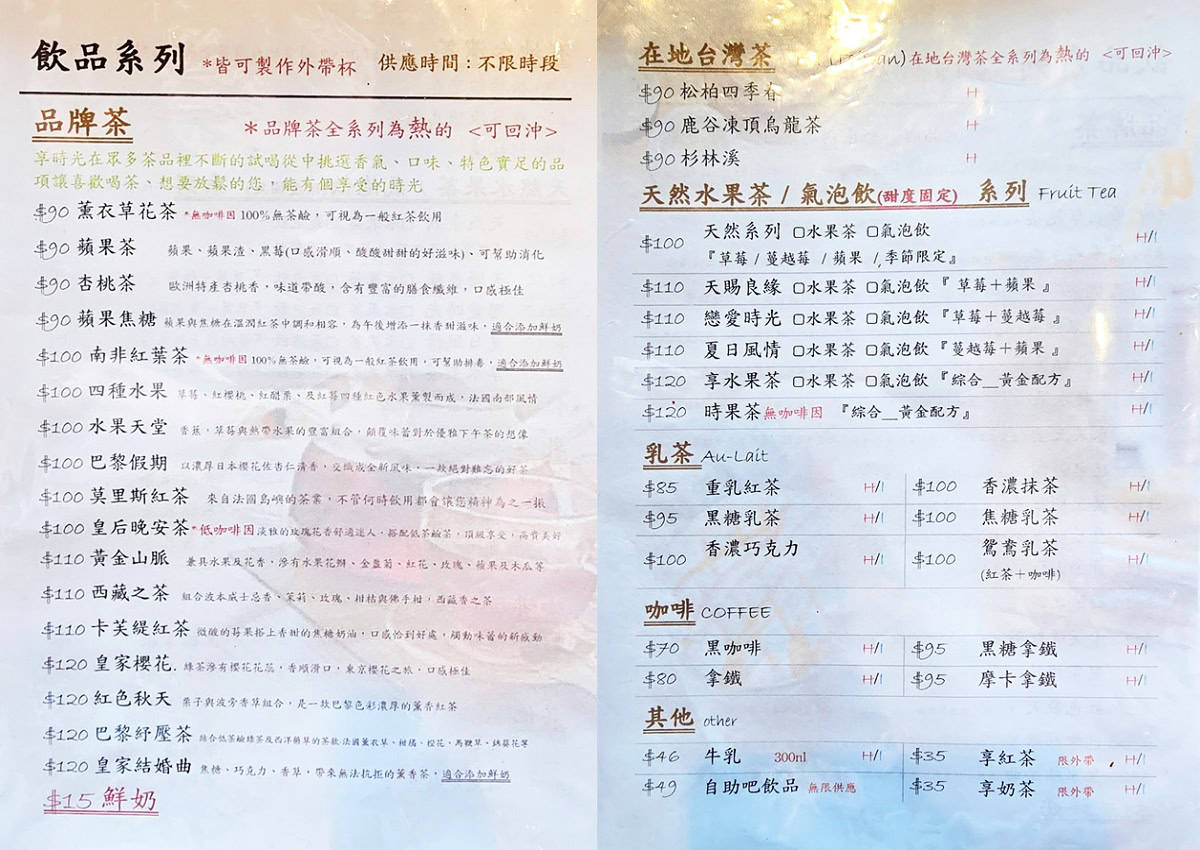 飲品系列 *皆可製作外帶杯 供應時間：不限時段
品牌茶 *品牌茶全系列為熱的 <可回沖>
享時光在眾多茶品裡不斷的試喝從中挑選香氣、口味、特色實足的品
項讓喜歡喝茶、想要放鬆的您，能有個享受的時光
$90 薰衣草花茶 *無咖啡因 100%無茶鹼，可視為一般紅茶飲用
$90 蘋果茶 蘋果、蘋果渣、黑莓(口感滑順、酸酸甜甜的好滋味)、可幫助消化
$90 杏桃茶 歐洲特產杏桃香，味道帶酸，含有豐富的膳食纖維，口感極佳
$90 蘋果焦糖 蘋果與焦糖在溫潤紅茶中調和相容，為午後增添一抹香甜滋味，適合添加鮮奶
$100 南非紅葉茶 *無咖啡因 100%無茶鹼，可視為一般紅茶飲用，可幫助排毒，適合添加鮮奶
$100 四種水果 草莓、紅櫻桃、紅醋栗、及紅莓四種紅色水果薰製而成，法國南部風情
$100 水果天堂 香蕉，草莓與熱帶水果的豐富組合，顛覆味蕾對於優雅下午茶的想像
$100 巴黎假期 以濃厚日本櫻花佐杏仁清香，交織成全新風味，一款絕對難忘的好茶
$100 莫里斯紅茶 來自法國島嶼的茶業，不管何時飲用都會讓您精神為之一振
$100 皇后晚安茶 *低咖啡因 淡雅的玫瑰花香舒適迷人，搭配低茶鹼茶，頂級享受，高貴美好
$110 黃金山脈 兼具水果及花香，滲有水果花瓣、金盞菊、紅花、玫瑰、蘋果及木瓜等
$110 西藏之茶 組合波本威士忌香、茉莉、玫瑰、柑桔與佛手柑，西藏香之茶
$110 卡芙緹紅茶 微酸的莓果搭上香甜的焦糖奶油，口感恰到好處，觸動味蕾的新感動
$120 皇家櫻花. 綠茶滲有櫻花花蕊，香順滑口，東京櫻花之旅，口感極佳
$120 紅色秋天 栗子與波旁香草組合，是一款巴黎色彩濃厚的薰香紅茶
$120 巴黎紓壓茶 結合低茶鹼綠茶及西洋藥草的茶飲:法國薰衣草、柑橘、橙花、馬鞭草、錦葵花等
$120 皇家結婚曲 焦糖、巧克力、香草，帶來無法抗拒的薰香茶，適合添加鮮奶
$15 鮮奶
在地台灣茶 在地台灣茶全系列為熱的 <可回沖>
$90 松柏四季春 H
$90 鹿谷凍頂烏龍茶 H
$90 杉林溪 H
天然水果茶 / 氣泡飲(甜度固定) 系列 Fruit Tea
$100 天然系列 □水果茶 □氣泡飲 H/I
『草莓 / 蔓越莓 / 蘋果 / 季節限定』
$110 天賜良緣 □水果茶 □氣泡飲『 草莓＋蘋果 』 H/I
$110 戀愛時光 □水果茶 □氣泡飲『草莓＋蔓越莓 』 H/I
$110 夏日風情 □水果茶 □氣泡飲『蔓越莓＋蘋果 』 H/I
$120 享水果茶 □水果茶 □氣泡飲『綜合__黃金配方』 H/I
$120 時果茶無咖啡因 『綜合__黃金配方』 H/I
乳茶 Au-Lait
$85 重乳紅茶 H/I $100 香濃抹茶 H/I
$95 黑糖乳茶 H/I $100 焦糖乳茶 H/I
$100 香濃巧克力 H/I $100 鴛鴦乳茶 H/I
(紅茶＋咖啡)
咖啡 COFFEE
$70 黑咖啡 H/I $95 黑糖拿鐵 H/I
$80 拿鐵 H/I $95 摩卡拿鐵 H/I
其他 other
$46 牛乳 300ml H/I $35 享紅茶 限外帶 H/I
$49 自助吧飲品 無限供應 $35 享奶茶 限外帶 H/I